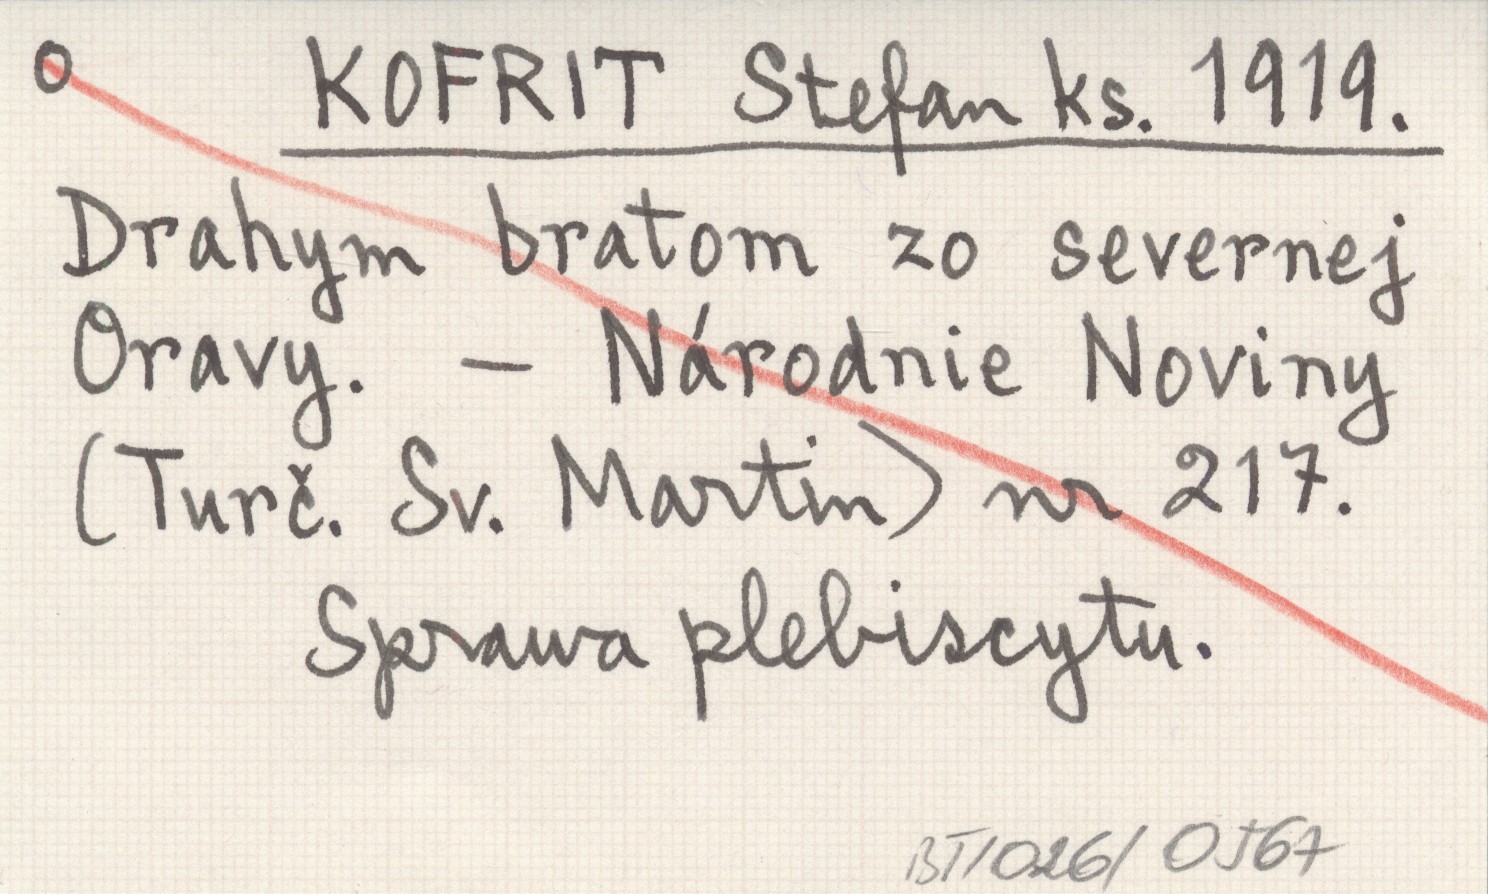 O KOFRIT Stefan ks. 1919.
Drahym bratom zo severnej
Oravy. — Národnie Noviny
(Turč. Sv. Martin) nr 217.
Sprawa plebiscytu.
BT/026/ OJ67